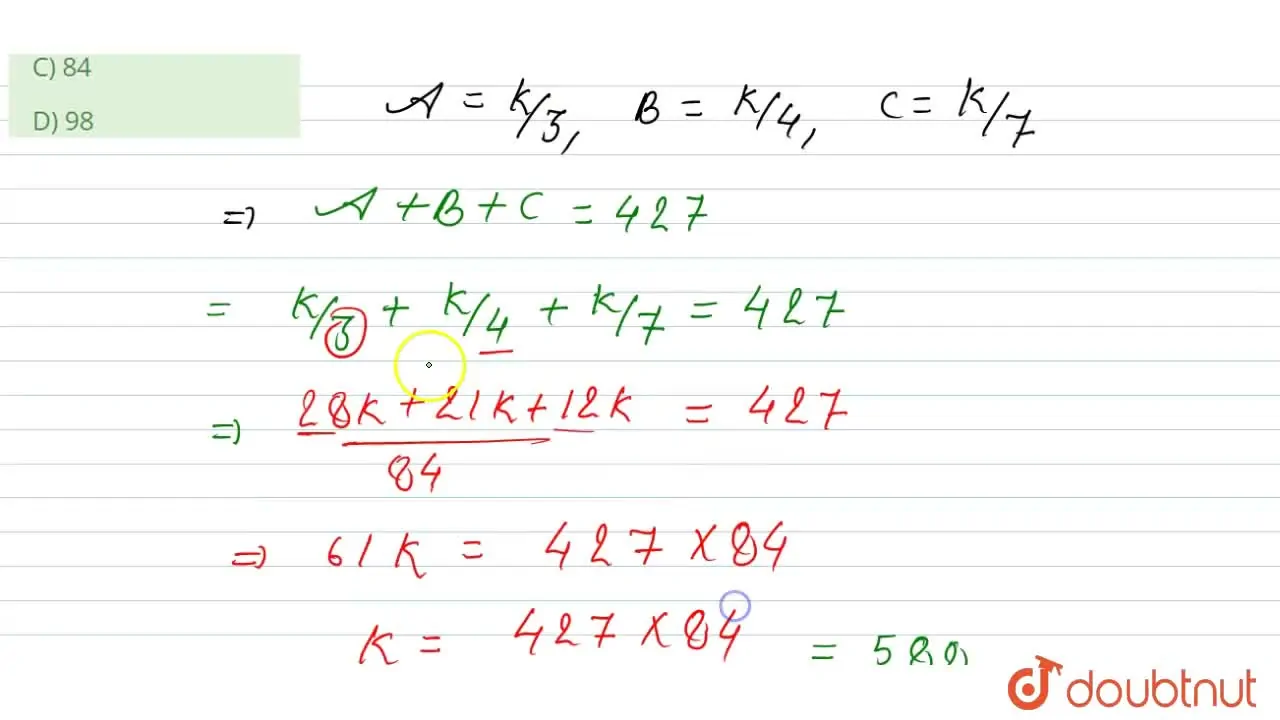 C) 84
D) 98
A = K/3, B = K/4, C = K/7
=> A + B + C = 427
= K/3 + K/4 + K/7 = 427
=> 28K + 21K + 12K = 427
84
=> 61K = 427 X 84
K = 427 X 84 =
doubtnut